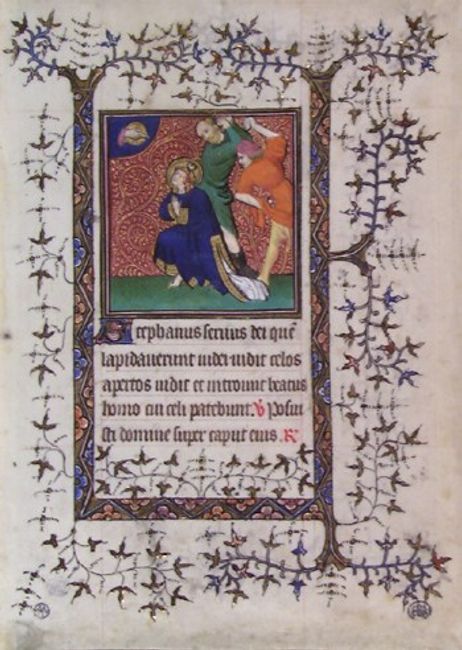 Stephanus seruus dei quē
lapidauerunt iudei uidit celos
apertos uidit et introiuit beatus
homo cui celi patebant. ℣ Posui
sti domine super caput eius. ℟